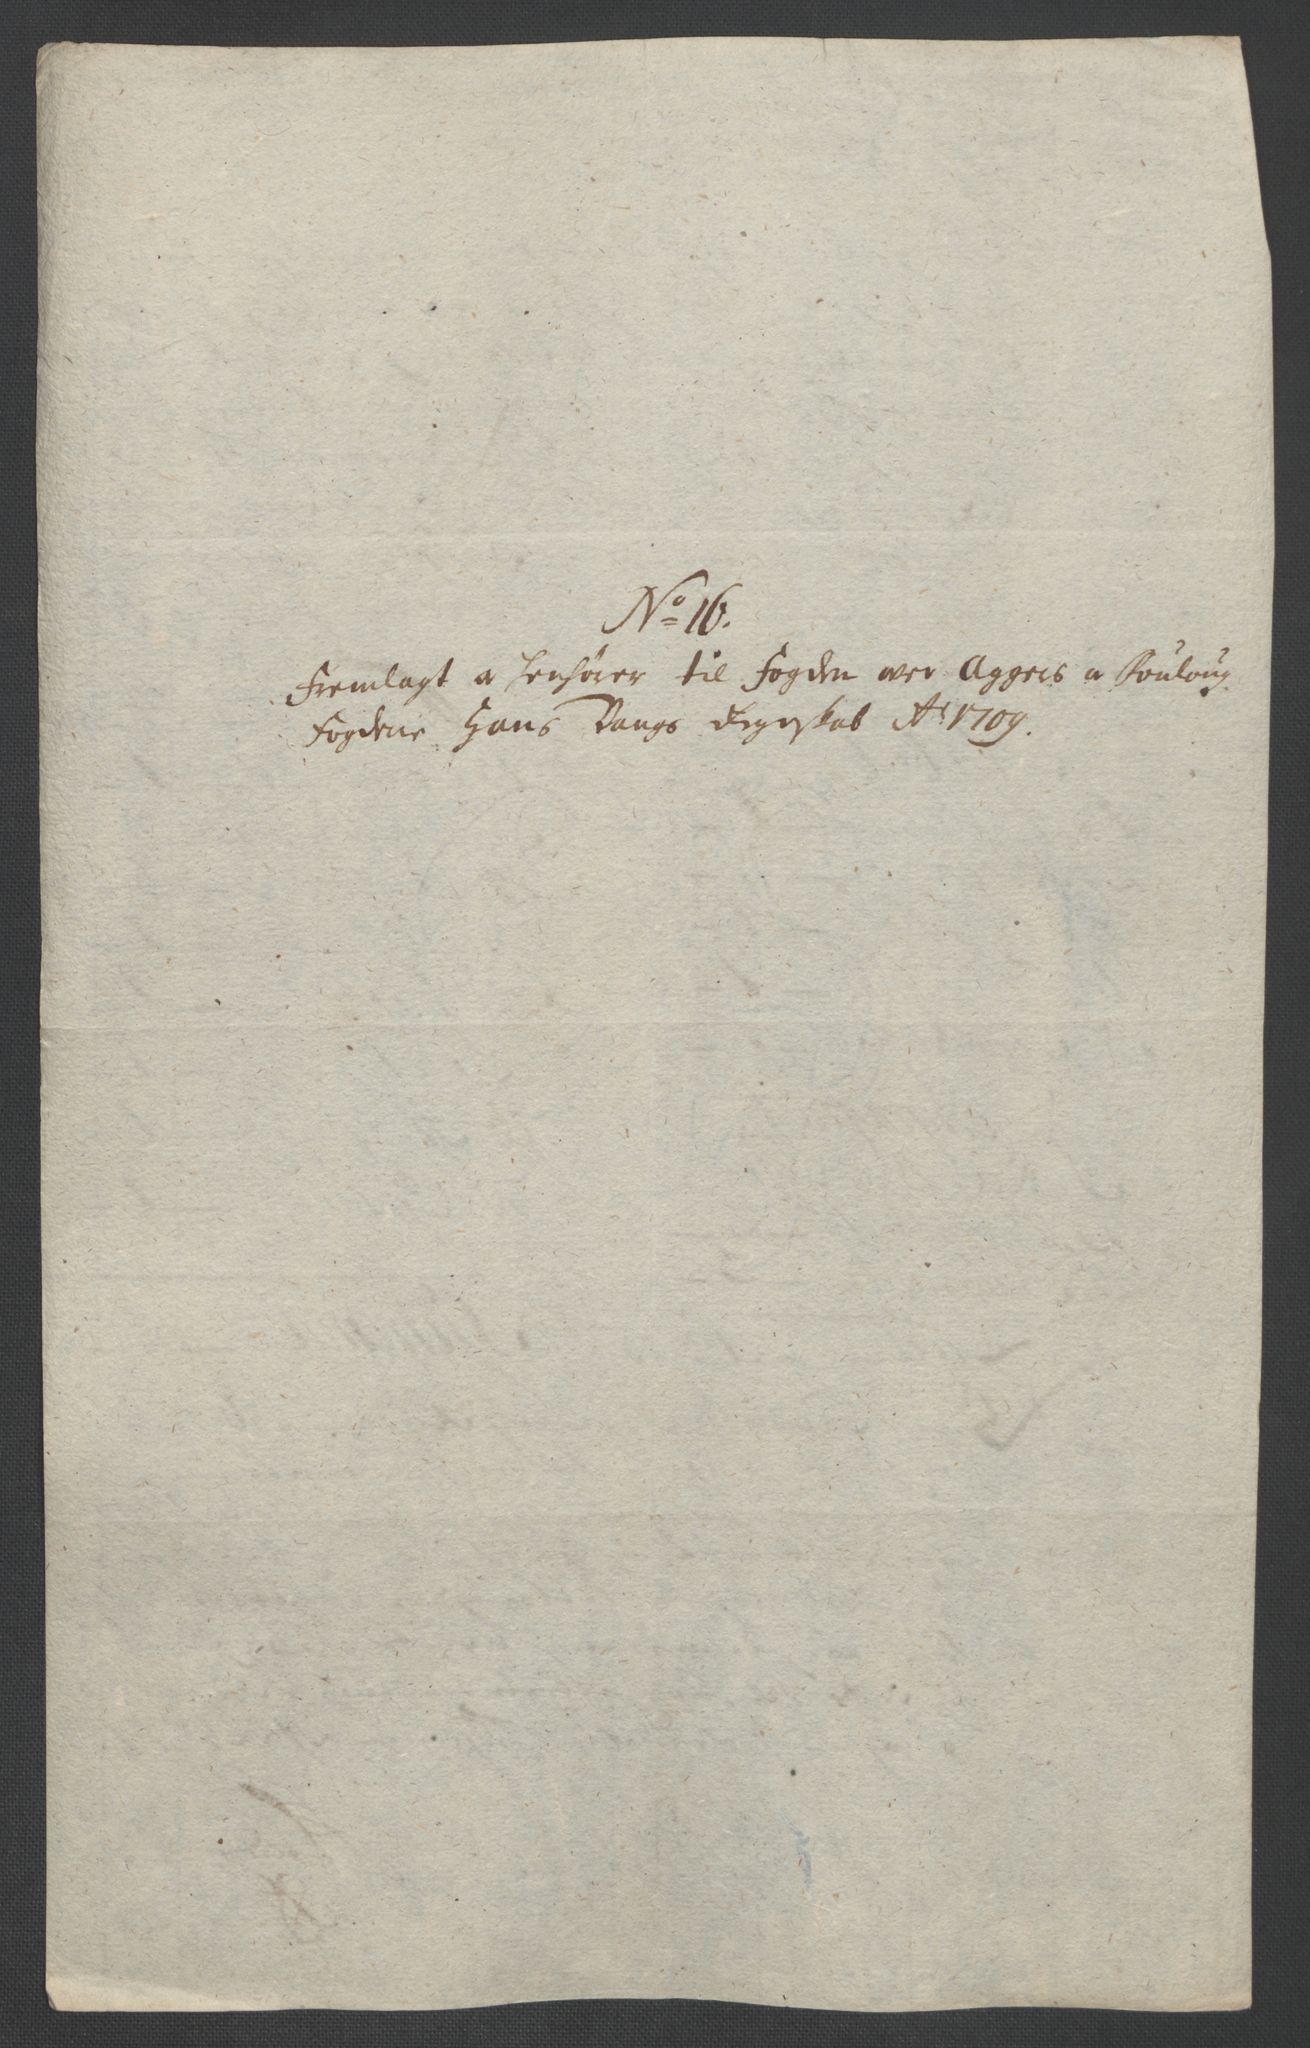 No 16.
Fremlagt og henhører til Fogden over Aggers og Fouloug
Fogderie Hans Bangs Regnskab Ao 1709.